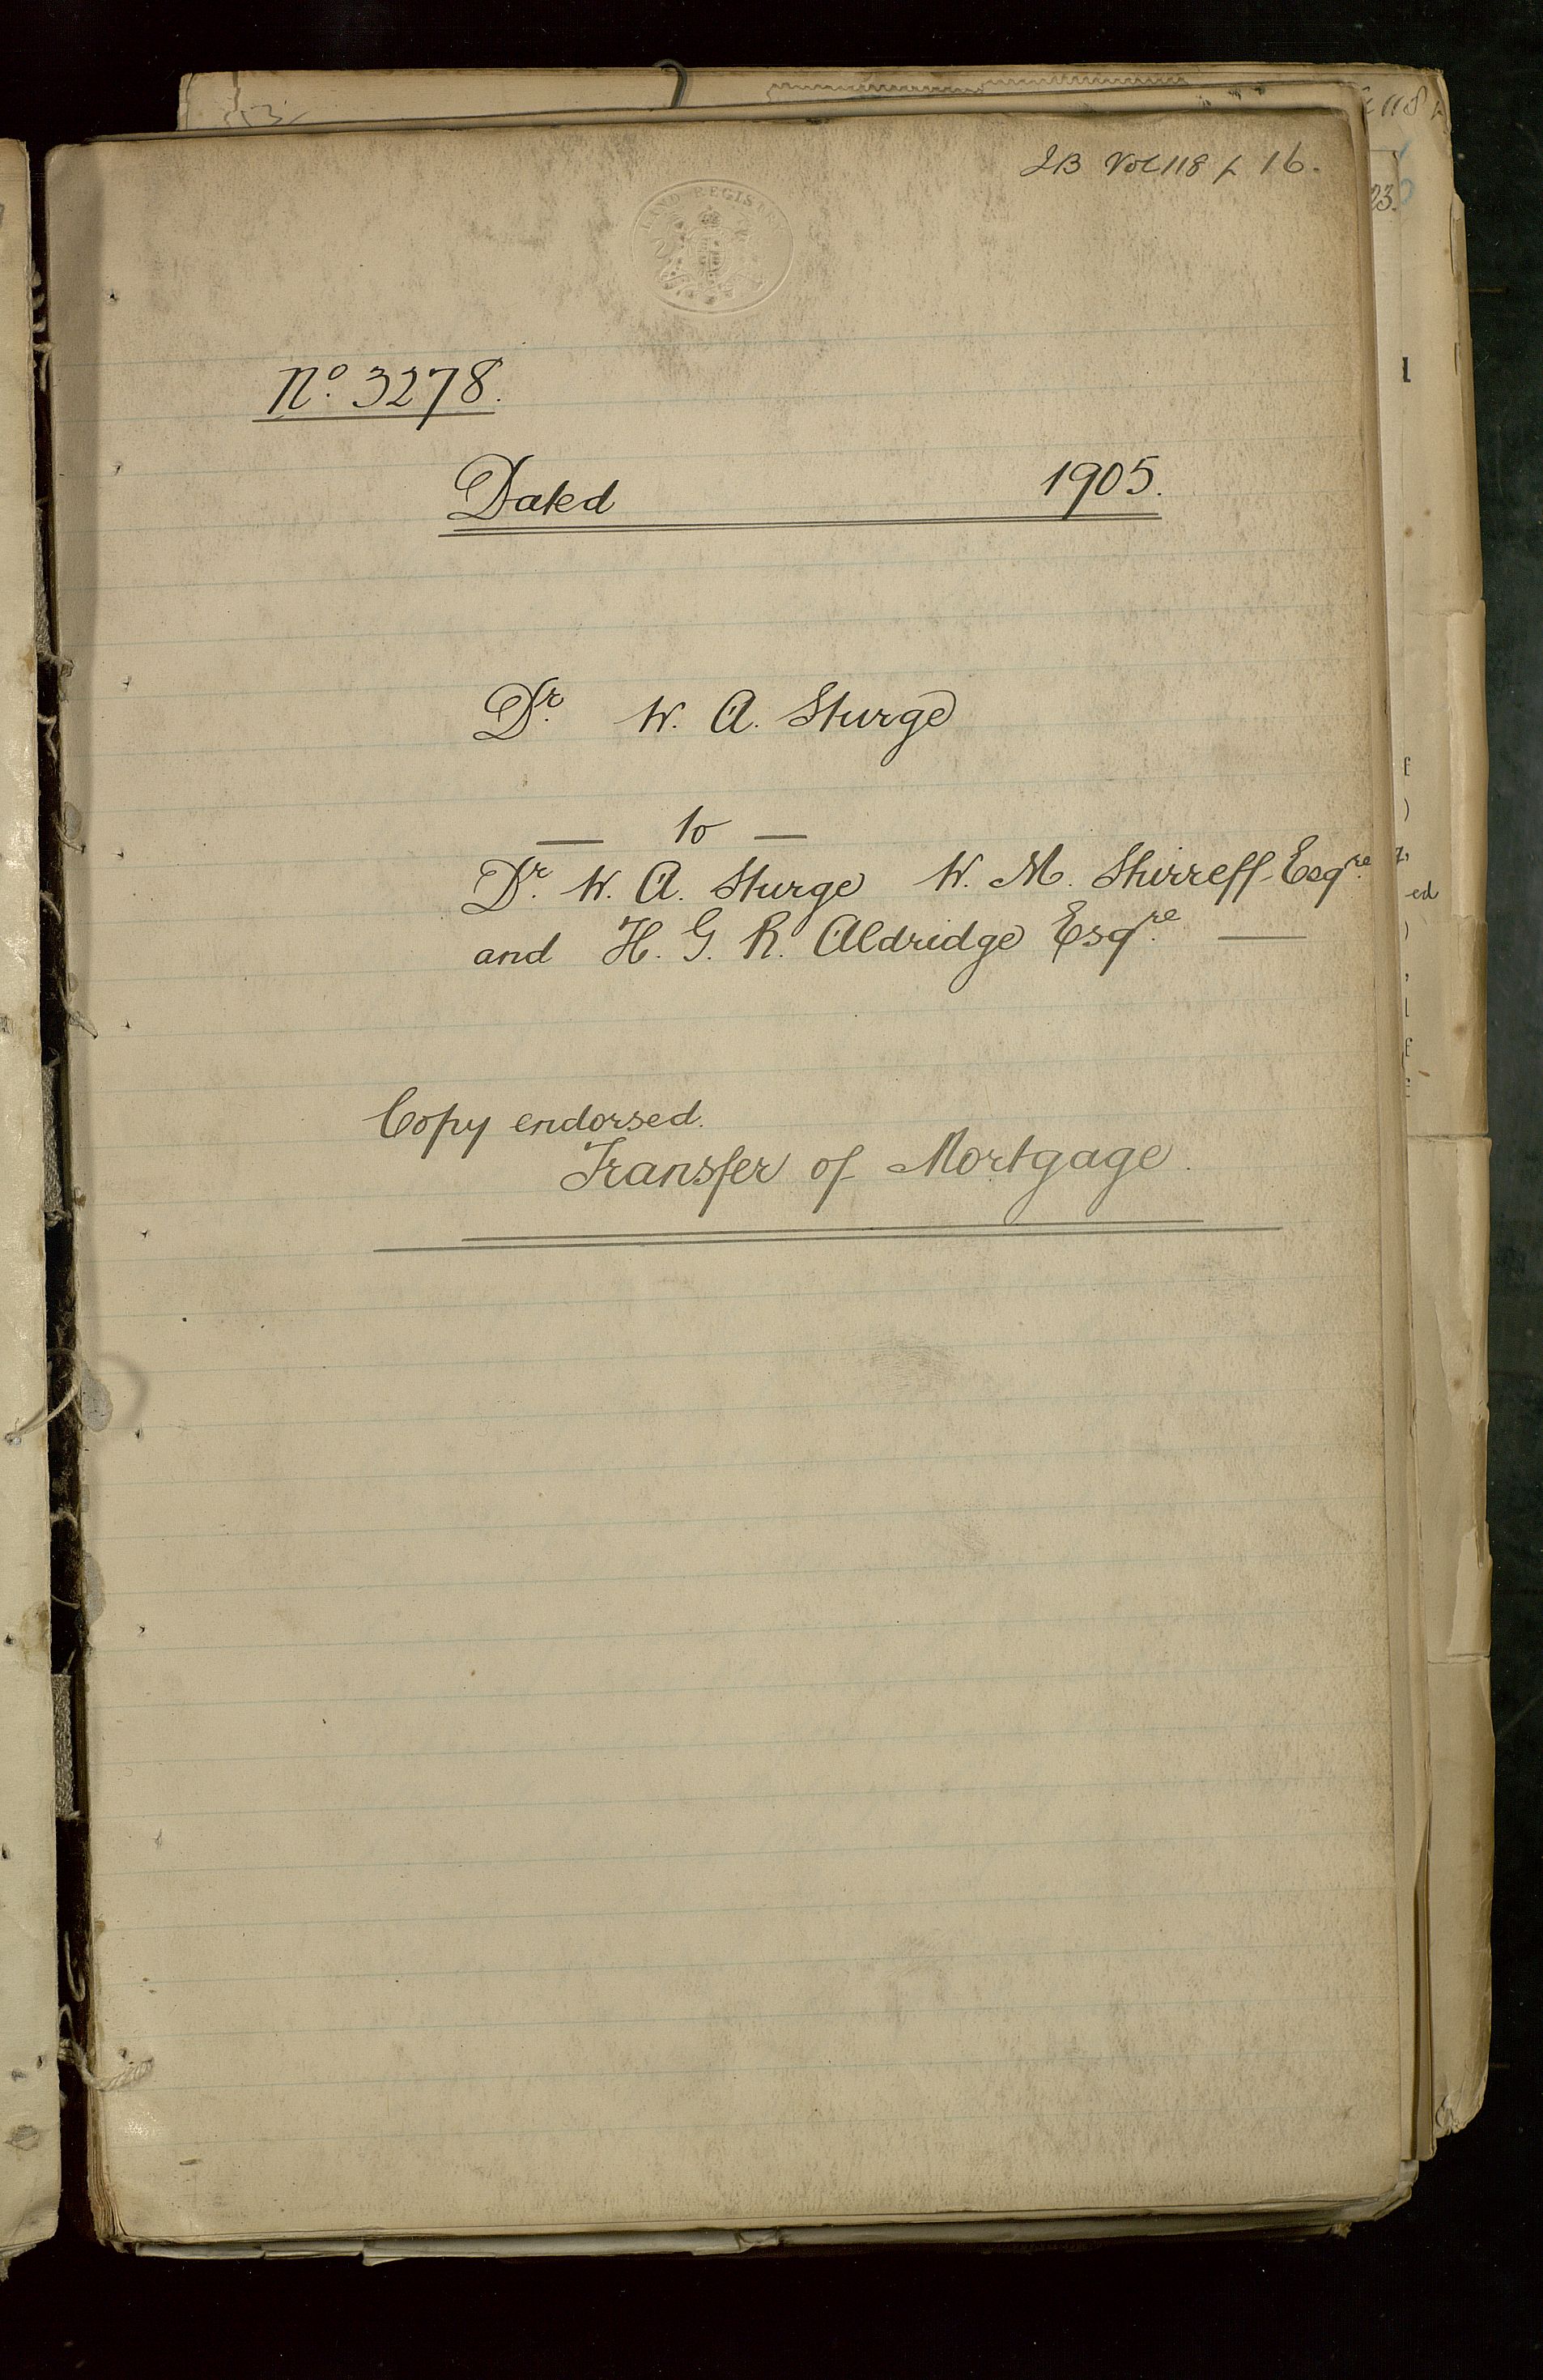 Vol 118 16.
LAND REGISTRY
No. 3278.
Dated 1905.
Dr. W. A. Sturge
— to —
Dr. W. A. Sturge W. M. Shirreff Esqre.
and H. G. R. Aldridge Esqre. —
Copy endorsed.
Transfer of Mortgage.